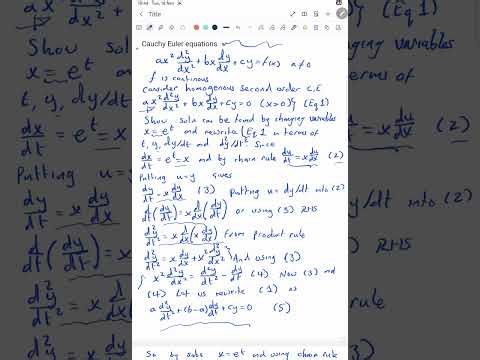 Title
Cauchy Euler equations
ax² d²y/dx² + bx dy/dx + cy = f(x) a≠0
f is continous
Consider homogenous second order C.E
ax² d²y/dx² + bx dy/dx + cy = 0 (x>0) (Eq1)
Show soln can be found by changing variables
x = e^t and rewrite (Eq1 in terms of
t, y, dy/dt and d²y/dt² since
dx/dt = e^t = x and by chain rule du/dt = x du/dx (2)
Putting u=y gives
dy/dt = x dy/dx (3) Putting u = dy/dt into (2)
d/dt(dy/dt) = x d/dx(dy/dt) or using (3) RHS
d²y/dt² = x d/dx(x dy/dx) From Product rule
d²y/dt² = x dy/dx + x² d²y/dx² And using (3)
x² d²y/dx² = d²y/dt² - dy/dt (4) Now (3) and
(4) Let us rewrite (1) as
a d²y/dt² + (b-a) dy/dt + cy = 0 (5)
So by subs x = e^t and using chain rule